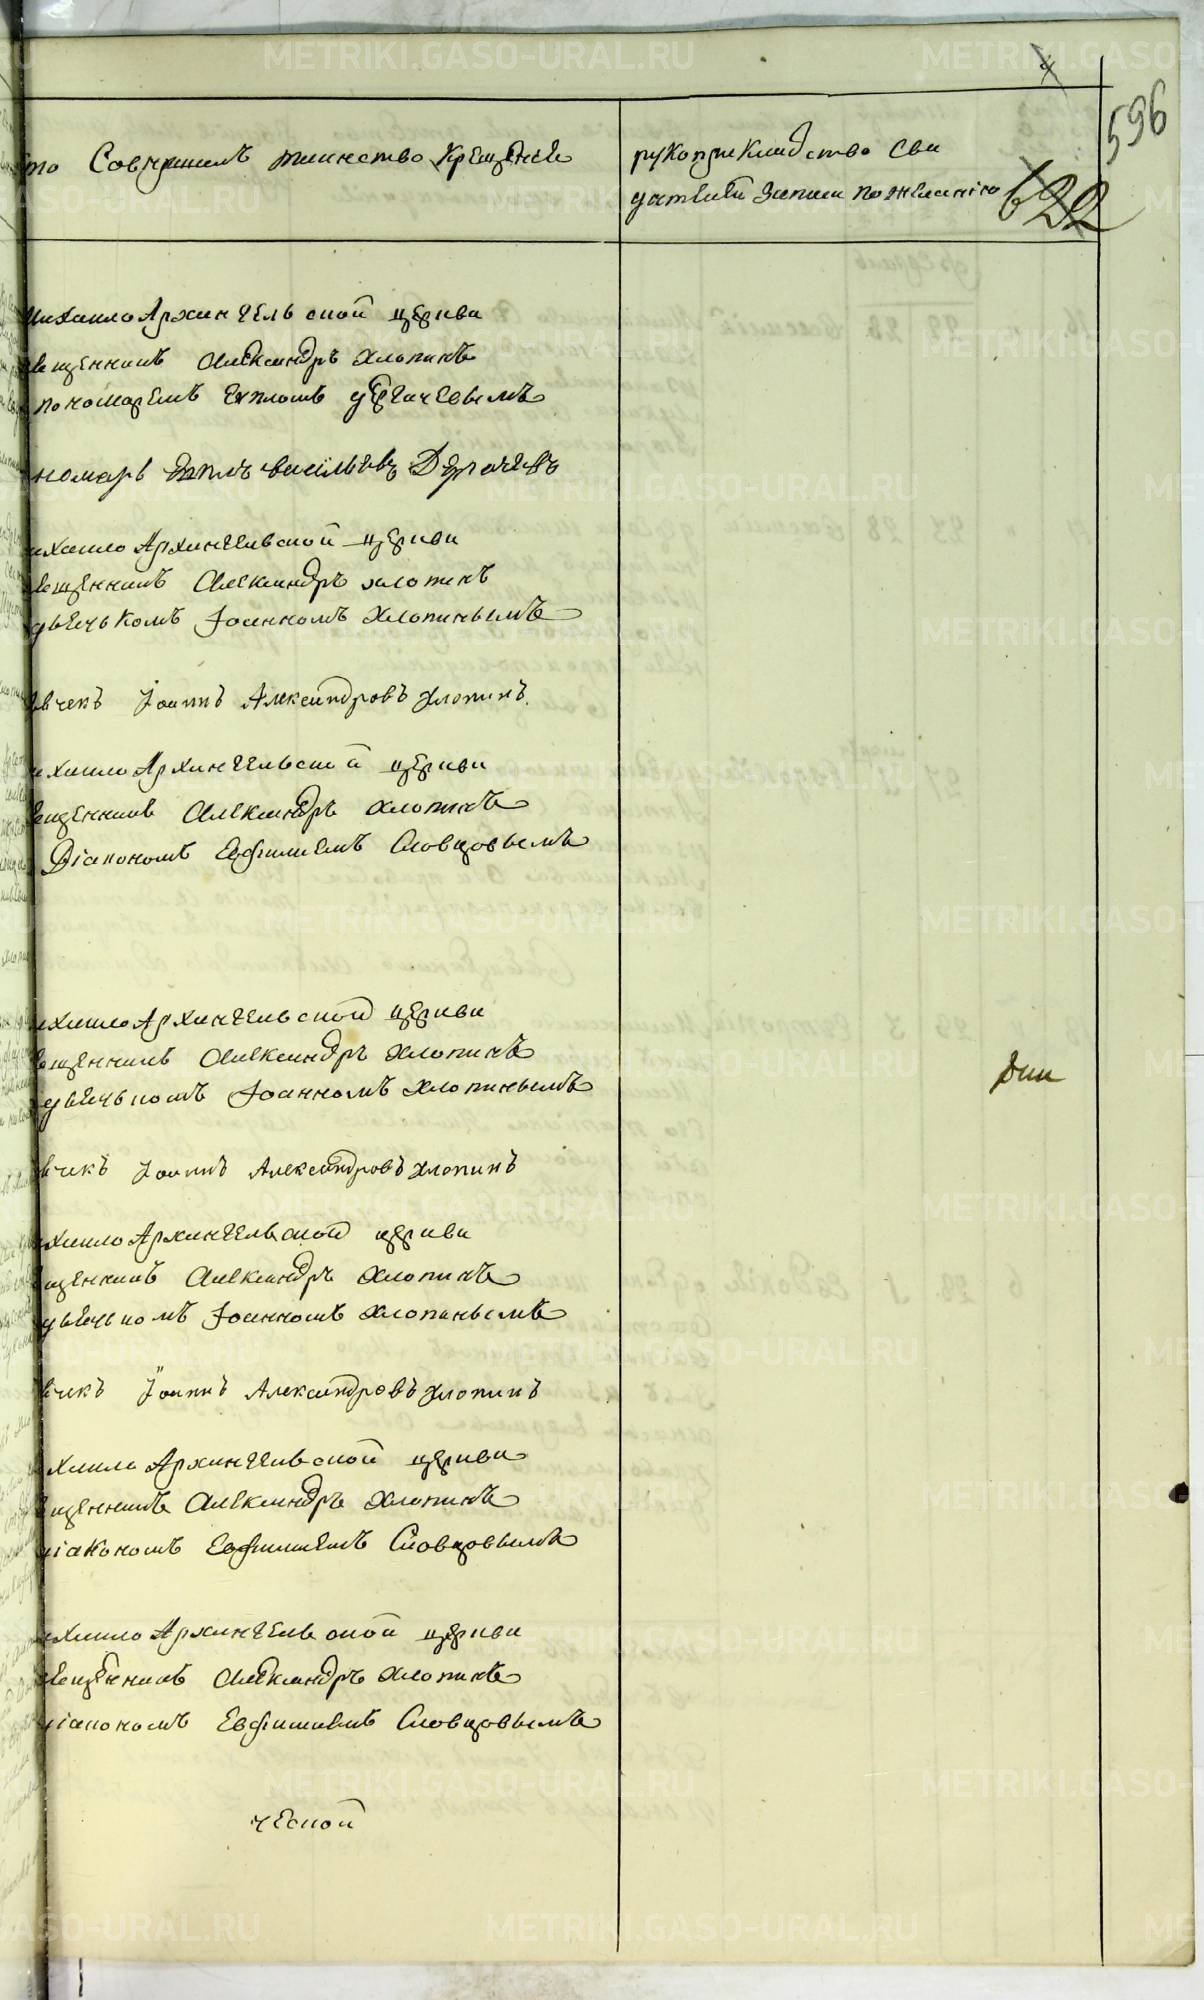 4
596
622
то Совершилъ таинство Крещенія
рукоприкладство сви
дѣтелей записи по желанію
Михаило Архангельской церкви
вященникъ Александръ Хлопинъ
пономаремъ
номарь Васильевъ
ихаило Архангельской церкви
вященникъ Александръ Хлопинъ
дьячькомъ Іоанномъ Хлопинымъ
ячекъ Іоаннъ Александровъ Хлопинъ.
ихаило Архангельской церкви
вященникъ Александръ Хлопинъ
Діакономъ Евфимиемъ Словцовымъ
ихаило Архангельской церкви
вященникъ Александръ Хлопинъ
дьячькомъ Іоанномъ Хлопинымъ
ячикъ Іоаннъ Александровъ Хлопинъ
ихаило Архангельской церкви
ященникъ Александръ Хлопинъ
дьячькомъ Іоанномъ Хлопинымъ
ячикъ Іоаннъ Александровъ Хлопинъ
ихаило Архангельской церкви
ященникъ Александръ Хлопинъ
діакономъ Евфимиемъ Словцовымъ
ихаило Архангельской церкви
вященникъ Александръ Хлопинъ
діакономъ Евфимиемъ Словцовымъ
ческой
METRIKI.GASO-URAL.RU